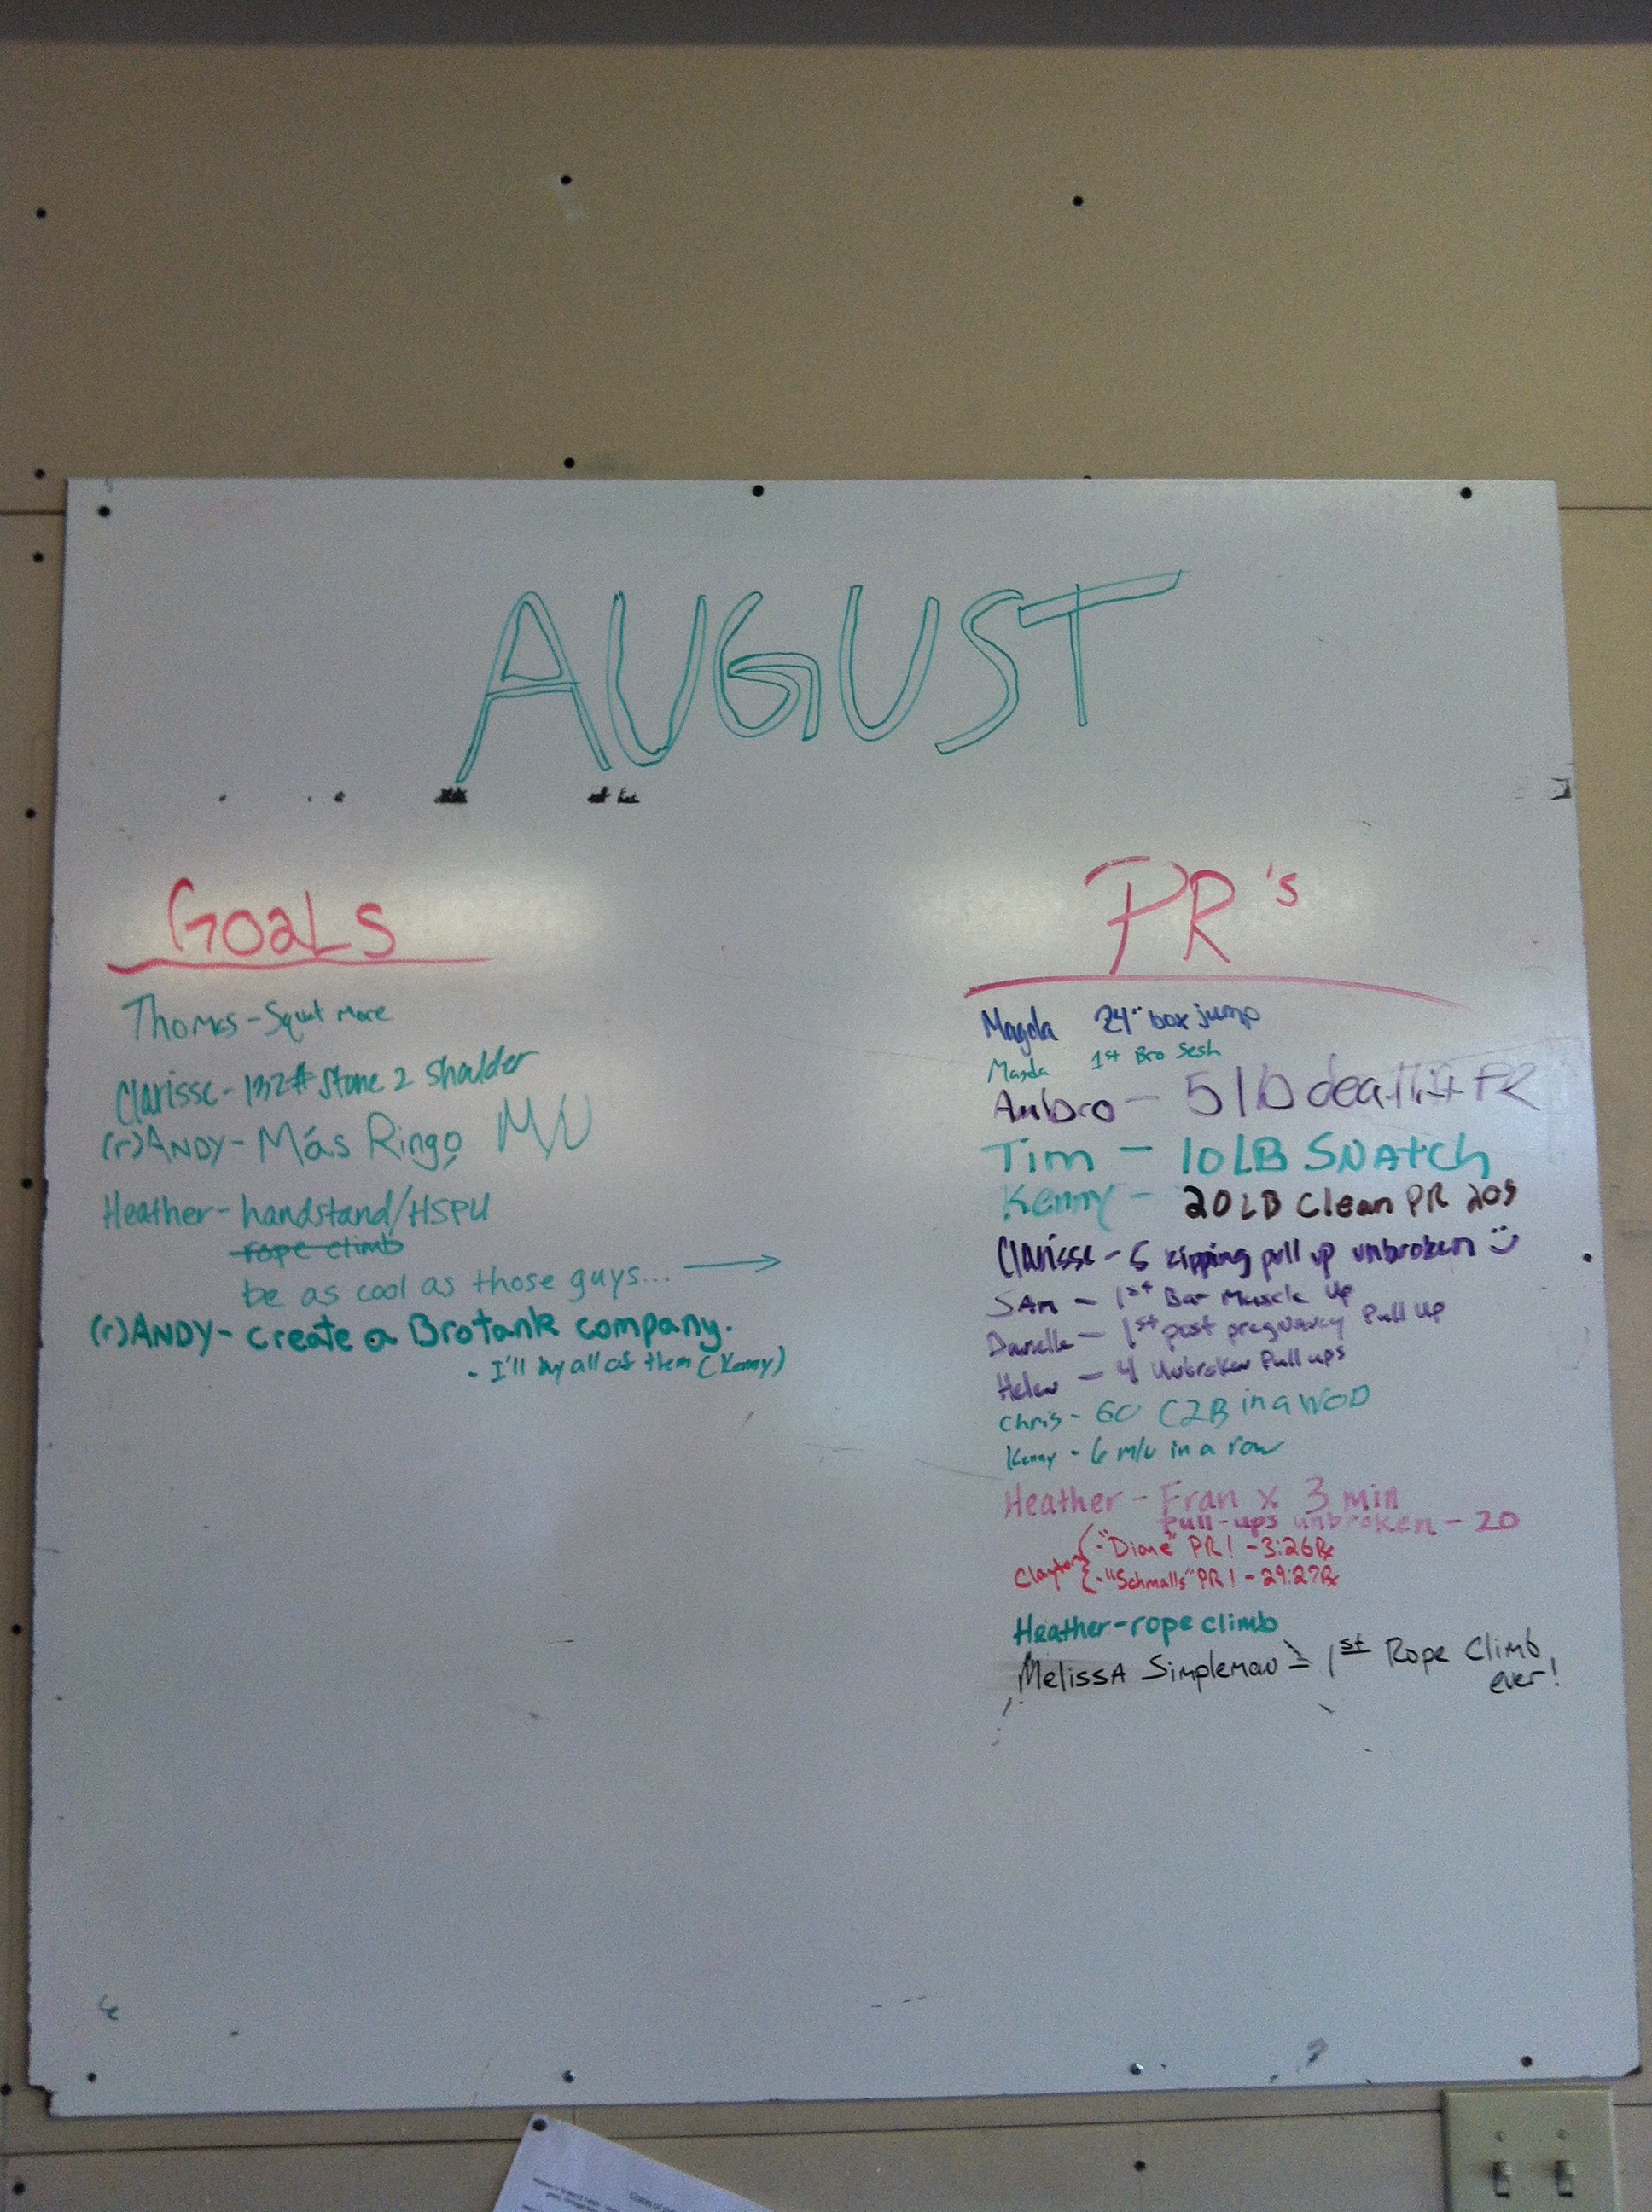 AUGUST
GOALS
Thomas - Squat more
Clarisse - 132# Stone 2 Shoulder
(r)ANDY - Más Ringo M/U
Heather - handstand/HSPU
rope climb
be as cool as those guys... →
(r)ANDY - Create a Brotank company.
- I'll buy all of them (Kenny)
PR's
Magda 24" box jump
Magda 1st Bro Sesh
Ambro - 5 lb deadlift PR
Tim - 10 LB SNATCH
Kenny - 20 LB Clean PR 205
Clarisse - 5 kipping pull up unbroken :)
SAM - 1st Bar Muscle Up
Danielle - 1st post pregnancy Pull Up
Helen - 4 Unbroken Pull ups
Chris - 60 C2B in a WOD
Kenny - 6 m/u in a row
Heather - Fran x 3 min
Pull-ups unbroken - 20
Clayton - "Diane" PR! - 3:26 Rx
- "Schmalls" PR! - 29:27 Rx
Heather - rope climb
Melissa Simpleman - 1st Rope Climb
ever!